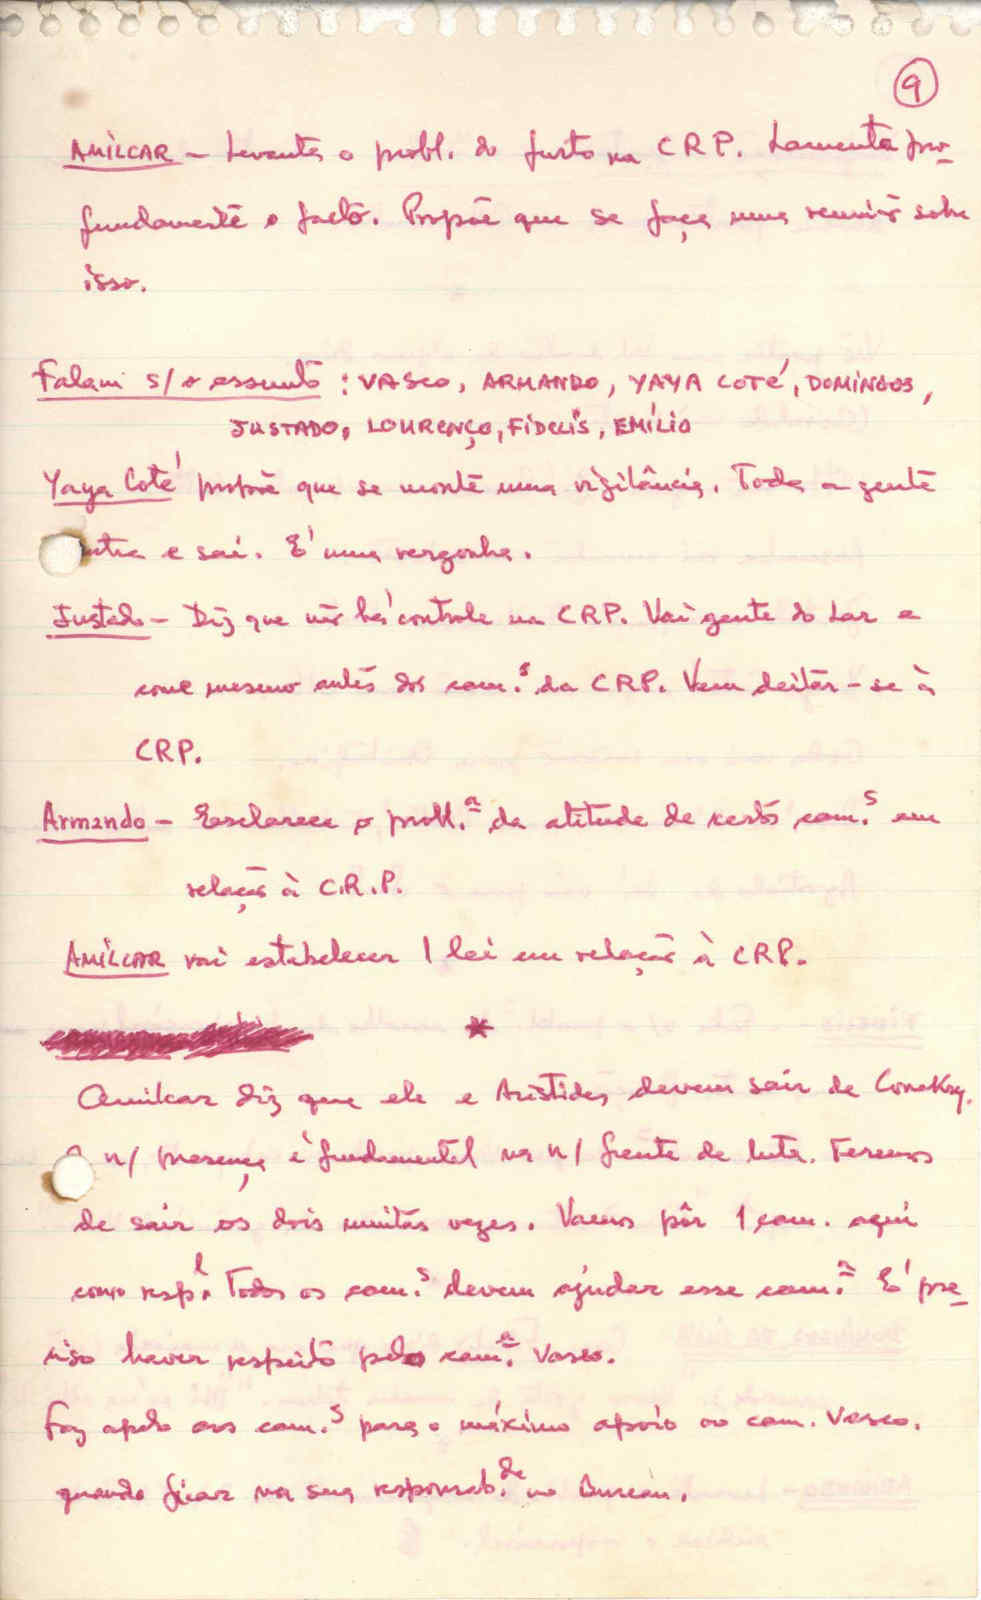 9
AMÍLCAR - Levanta o probl. do furto na CRP. Lamenta pro-
fundamente o facto. Propõe que se faça uma reunião sobre
isso.
Falam s/ o assunto : VASCO, ARMANDO, YAYA COTÉ, DOMINGOS,
JUSTADO, LOURENÇO, FIDELIS, EMÍLIO
Yaya Coté propõe que se monte uma vigilância. Toda a gente
entra e sai. É uma vergonha.
Justado - Diz que não há controle na CRP. Vai gente do Lar e
come mesmo antes dos cam.s da CRP. Vem deitar-se à
CRP.
Armando - Esclarece o probl.a da atitude de certos cam.s em
relação à C.R.P.
AMÍLCAR vai estabelecer 1 lei em relação à CRP.
*
Amilcar diz que ele e Aristides devem sair de Conakry.
A n/ presença é fundamental na n/ frente de luta. Teremos
de sair os dois muitas vezes. Vamos pôr 1 cam. aqui
como resp.l Todos os cam.s devem ajudar esse cam.a É pre-
ciso haver respeito pelo cam.a Vasco.
Faz apelo aos cam.s para o máximo apoio ao cam. Vasco.
quando ficar na sua responsab.de no Bureau.